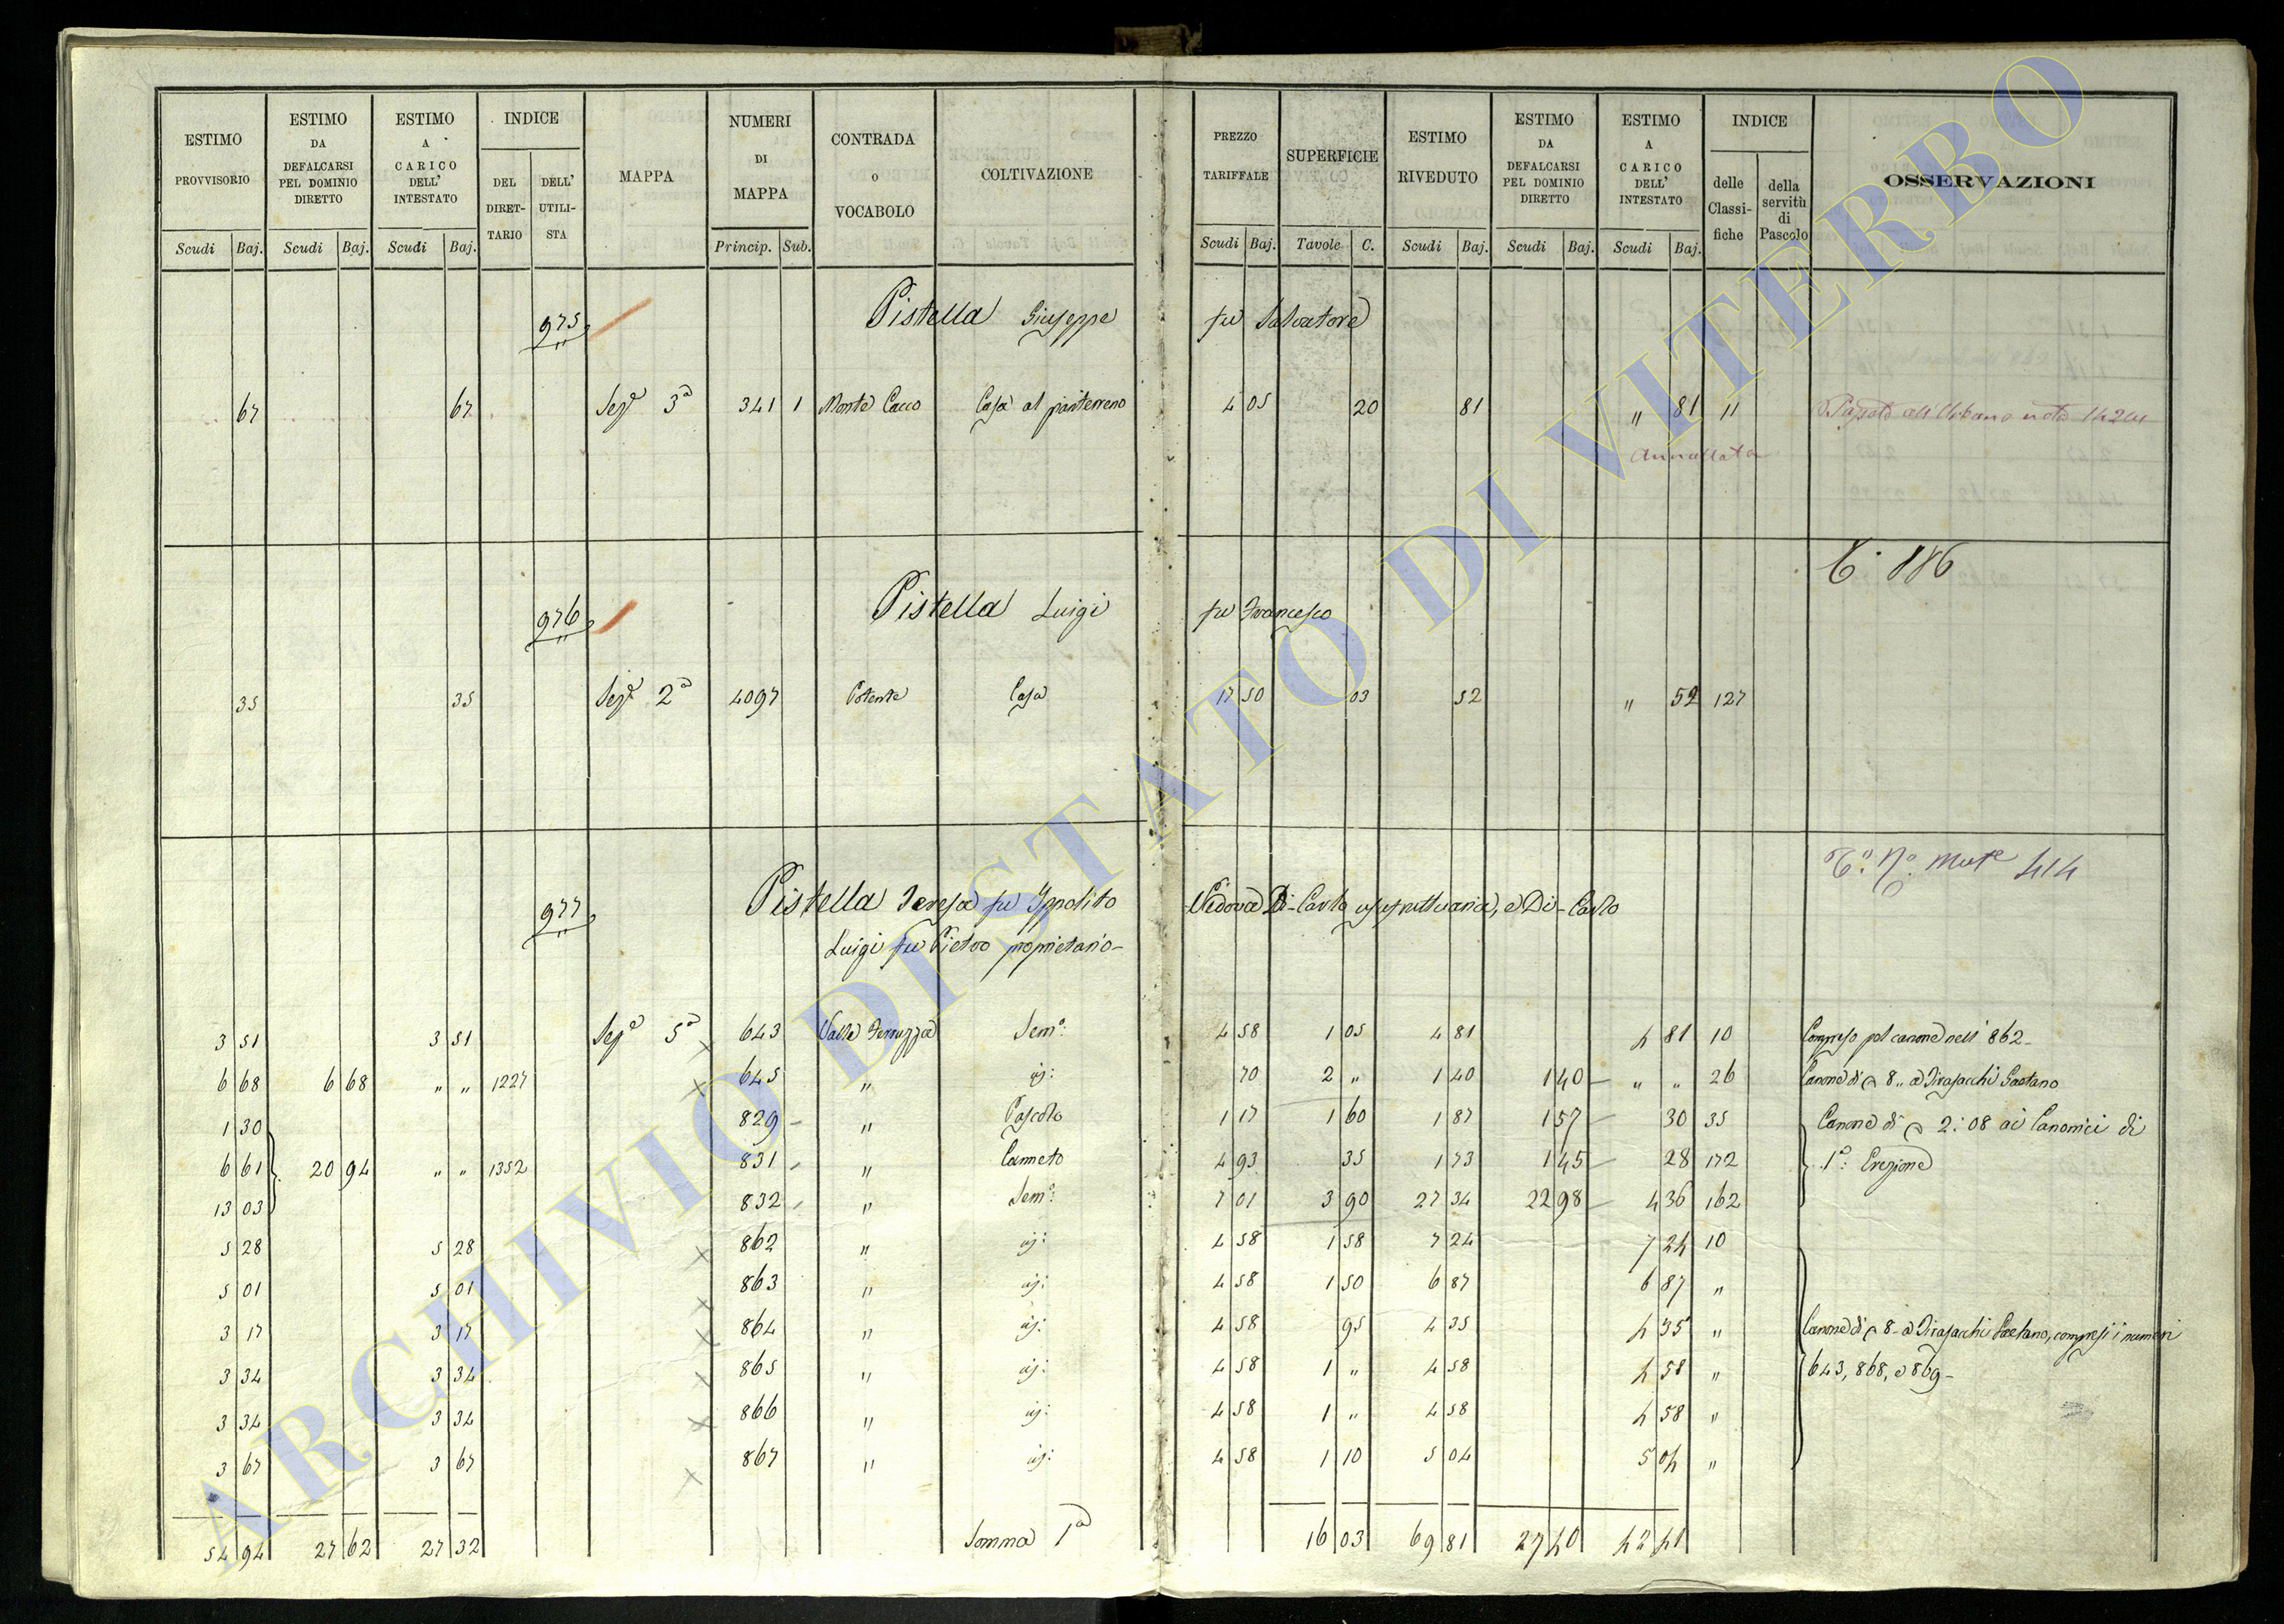 ESTIMO PROVVISORIO Scudi Baj. ESTIMO DA DEFALCARSI PEL DOMINIO DIRETTO Scudi Baj. ESTIMO A CARICO DELL' INTESTATO Scudi Baj. INDICE DEL DIRETTARIO DELL' UTILISTA MAPPA NUMERI DI MAPPA Princip. Sub. CONTRADA o VOCABOLO COLTIVAZIONE PREZZO TARIFFALE Scudi Baj. SUPERFICIE Tavole C. ESTIMO RIVEDUTO Scudi Baj. ESTIMO DA DEFALCARSI PEL DOMINIO DIRETTO Scudi Baj. ESTIMO A CARICO DELL' INTESTATO Scudi Baj. INDICE delle Classifiche della servitù di Pascolo OSSERVAZIONI
975 Pistella Giuseppe fu Salvatore
67 67 Sez.e 3a 341 1 Monte Cacco Casa al pianterreno 4 05 20 81 " 81 11 Passato all'Urbano
Annullata
886
976 Pistella Luigi fu Francesco
35 35 Sez.e 2a 4097 Potente Casa 17 50 03 52 " 52 127
N.o 414
977 Pistella Teresa fu Ippolito Vedova Di-Carlo usufruttuaria, e Di-Carlo
Luigi fu Pietro proprietario-
3 51 3 51 Sez.e 5a 643 Valle Semo: 4 58 1 05 4 81 4 81 10 Compreso pel canone nell' 862-
6 68 6 68 " " 1227 645 " id: 70 2 " 1 40 1 40 " " 26 Canone di 8 " a Tirasacchi Gaetano
1 30 829 " Pascolo 1 17 1 60 1 87 1 57 30 35 Canone di 2:08 ai Canonici di
6 61 20 94 " " 1352 831 " Canneto 4 93 35 1 73 1 45 28 172 1a: Erezione
13 03 832 " Semo: 7 01 3 90 27 34 22 98 4 36 162
5 28 5 28 862 " id: 4 58 1 58 7 24 7 24 10
5 01 5 01 863 " id: 4 58 1 50 6 87 6 87 "
3 17 3 17 864 " id: 4 58 95 4 35 4 35 " Canone di 8- a Tirasacchi Gaetano, compresi i numeri
3 34 3 34 865 " id: 4 58 1 " 4 58 4 58 " 643, 868, e 869-
3 34 3 34 866 " id: 4 58 1 " 4 58 4 58 "
3 67 3 67 867 " id: 4 58 1 10 5 04 5 04 "
54 94 27 62 27 32 Somma 1a 16 03 69 81 27 40 42 41
ARCHIVIO DI STATO DI VITERBO